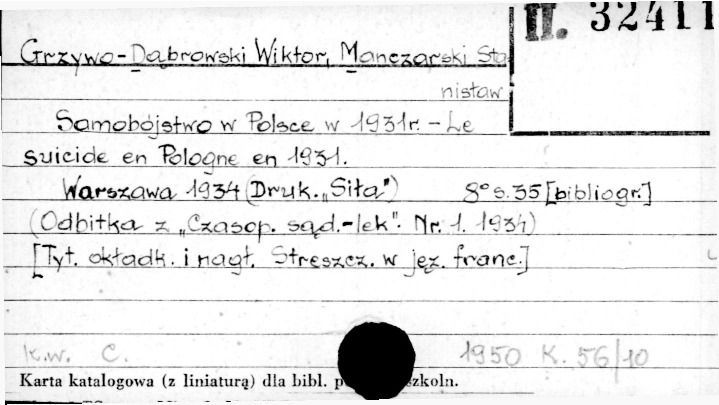 II. 32411
Grzywo-Dąbrowski Wiktor, Manczarski Sta
nisław
Samobójstwo w Polsce w 1931r. - Le
suicide en Pologne en 1931.
Warszawa 1934 (Druk. „Siła") 8° s. 35 [bibliogr.]
(Odbitka z „Czasop. sąd.-lek". Nr. 1. 1934)
[Tyt. okładk. i nagł. Streszcz. w jęz. franc.]
k.w. C. 1950 K. 56/10
Karta katalogowa (z liniaturą) dla bibl. szkoln.